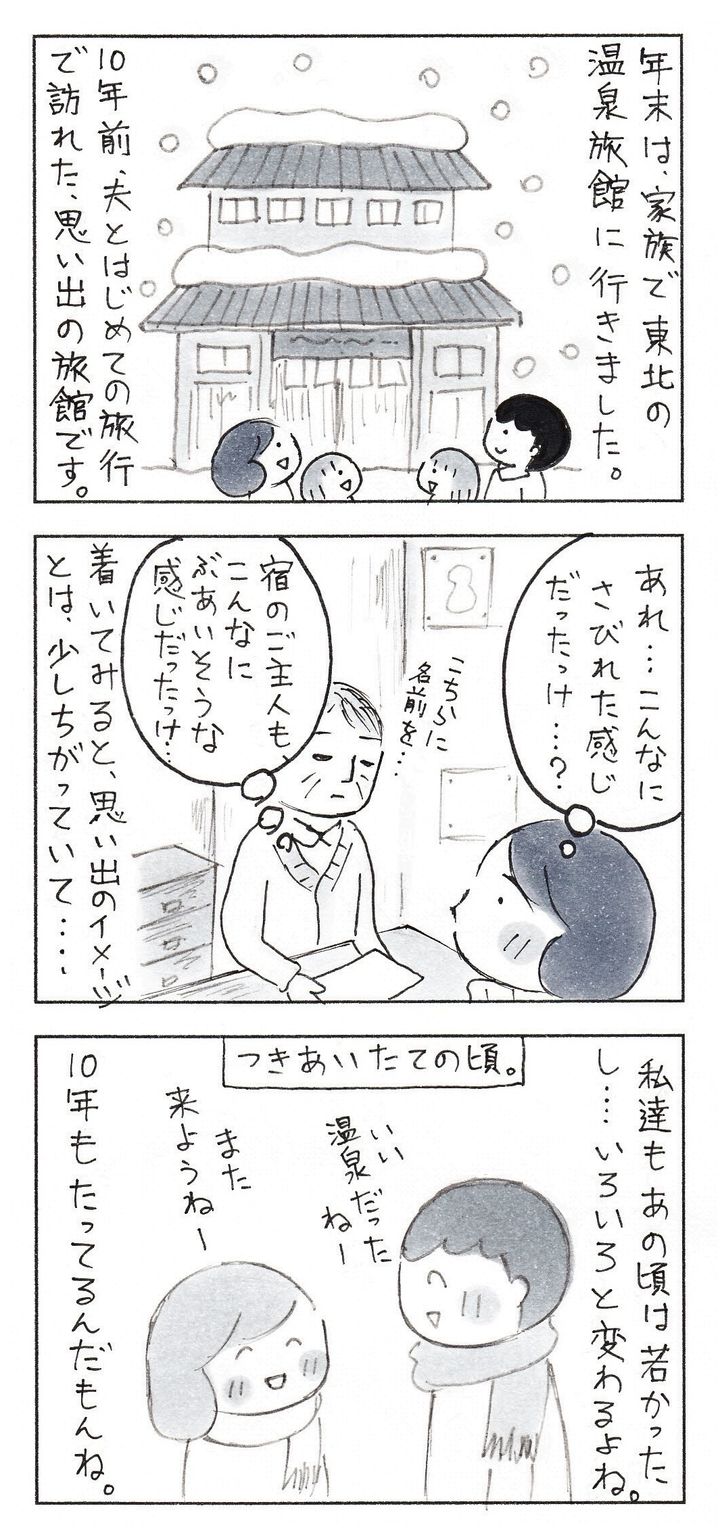 年末は、家族で東北の
温泉旅館に行きました。
10年前、夫とはじめての旅行
で訪れた、思い出の旅館です。
あれ…こんなに
さびれた感じ
だったっけ…?
こちらに
名前を…
宿のご主人も、
こんなに
ぶあいそうな
感じだったっけ…
着いてみると、思い出のイメージ
とは、少しちがっていて・・・・
つきあいたての頃。
私達もあの頃は若かった
し・・・いろいろと変わるよね。
いい
温泉だった
ねー
また
来ようねー
10年もたってるんだもんね。